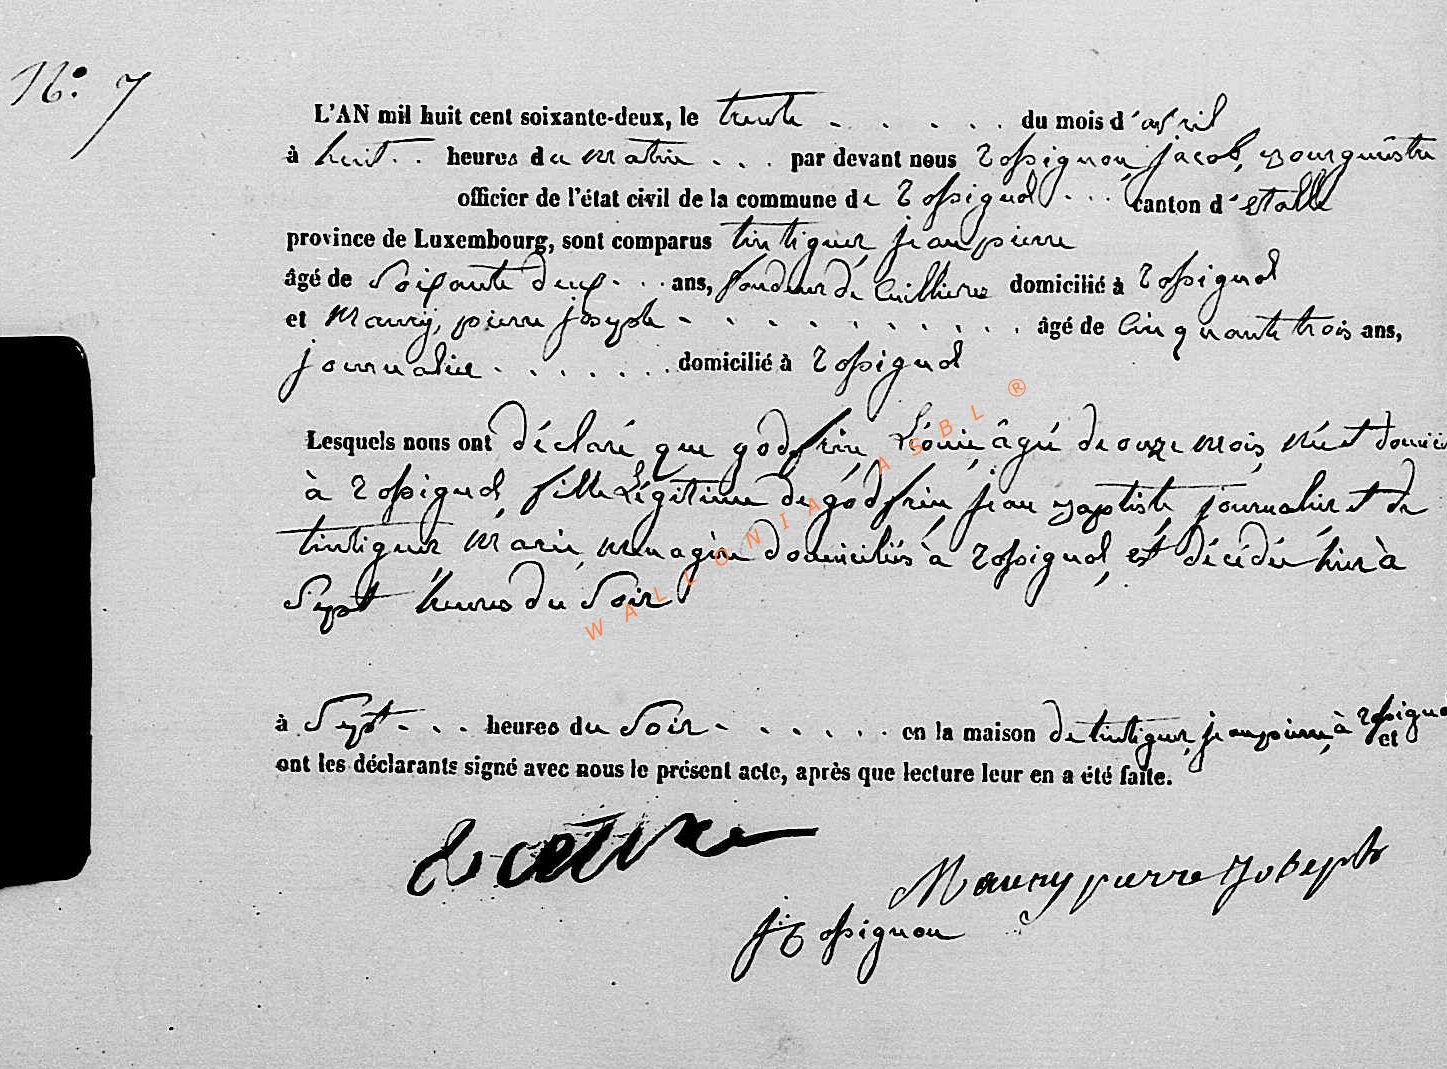 N.º 7
L'AN mil huit cent soixante-deux, le trente . . . . . . du mois d'avril
à huit . . heures du matin . . . par devant nous Rossignon, jacob, Bourguestre
officier de l'état civil de la commune de Rossignol . . . canton d'etalle
province de Luxembourg, sont comparus tintigner, jean pierre
âgé de soixante deux . . . ans, fondeur de Cuillieres domicilié à Rossignol
et Maury, pierre joseph - . . . . . . . . . . âgé de Cinquante trois ans,
journalier . . . . . . . domicilié à Rossignol
Lesquels nous ont déclaré que godfrin, Léonie, âgée de onze mois, née et domicil
à Rossignol fille Légitime de godfrin, jean Baptiste, journalier et de
tintigner, Marie, menagère domiciliés à Rossignol, est décédée hier à
Sept heures du Soir
à Sept . . . heures du Soir . . . . . . . en la maison de tintigner, jean pierre, à Rossignol
et
ont les déclarants signé avec nous le présent acte, après que lecture leur en a été faite.
Maury pierre Joseph
j: Rossignon
WALLONIA ASBL ®